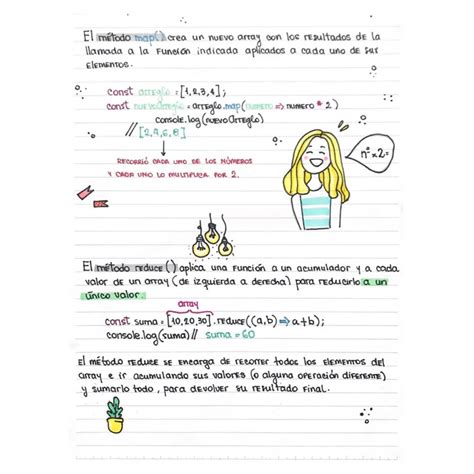 El método map() crea un nuevo array con los resultados de la
llamada a la función indicada aplicados a cada uno de sus
elementos.
const arreglo = [1,2,3,4];
const nuevoArreglo = arreglo.map(numero => numero * 2)
console.log(nuevoArreglo)
// [2,4,6,8]
Recorrió cada uno de los números
y cada uno lo multiplica por 2.
nº x2=
El método reduce() aplica una función a un acumulador y a cada
valor de un array (de izquierda a derecha) para reducirlo a un
único valor.
array
const suma = [10,20,30].reduce((a,b) => a+b);
console.log(suma) // suma = 60
El método reduce se encarga de recorrer todos los elementos del
array e ir acumulando sus valores (o alguna operación diferente)
y sumarlo todo, para devolver su resultado final.